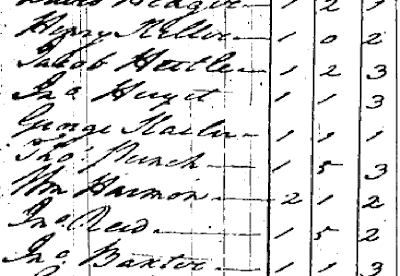 1 2 1
Henry Keller 1 0 2
Jakob 1 2 3
Jno 1 1 3
George 1 1 1
Thos Punch 1 5 3
Wm Harmon 2 1 2
Jno Reid 1 5 2
Jno Baxter 1 1 3